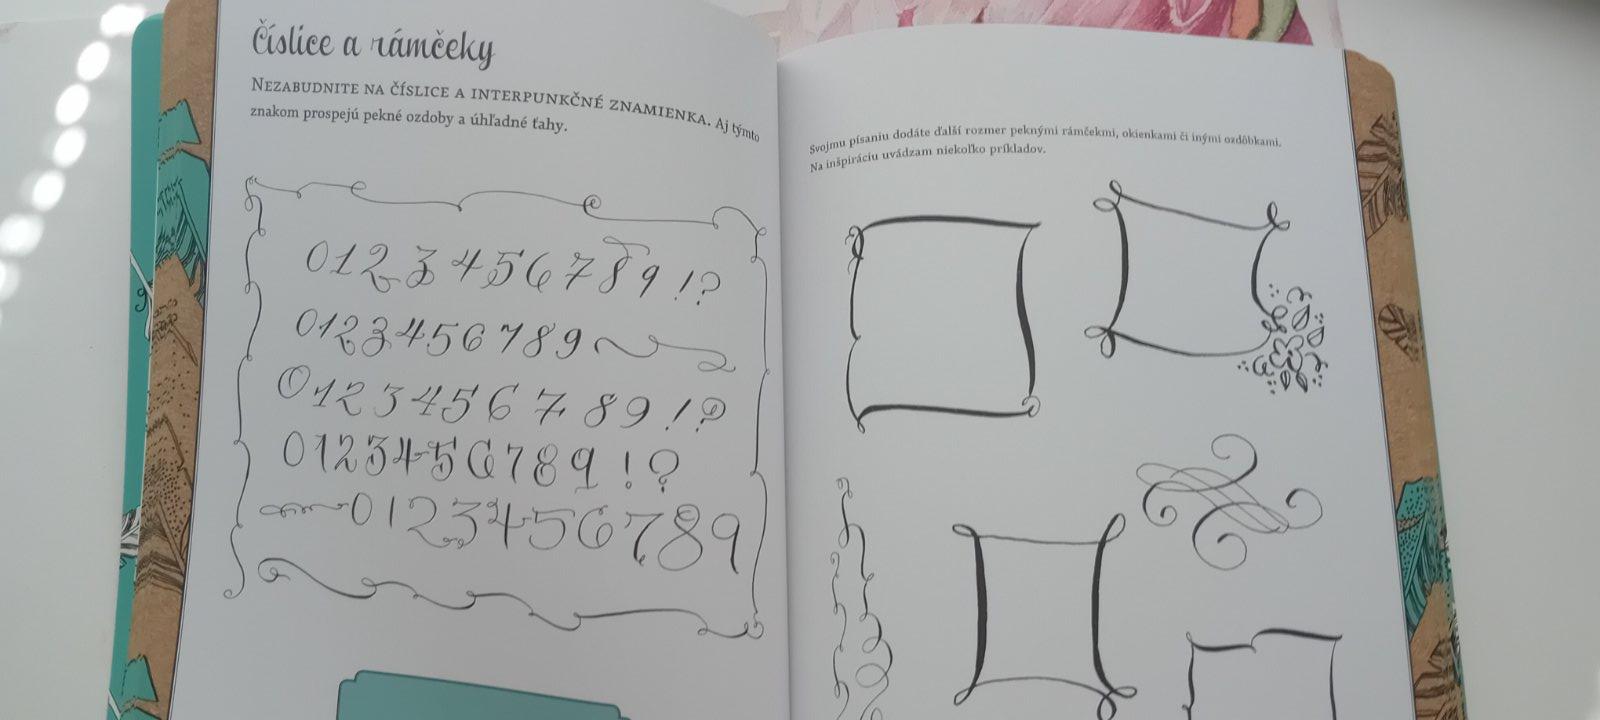 Číslice a rámčeky
Nezabudnite na číslice a interpunkčné znamienka. Aj týmto
znakom prospejú pekné ozdoby a úhľadné ťahy.
0123456789!?
0123456789
0123456789!?
0123456789!?
0123456789
Svojmu písaniu dodáte ďalší rozmer peknými rámčekmi, okienkami či inými ozdôbkami.
Na inšpiráciu uvádzam niekoľko príkladov.